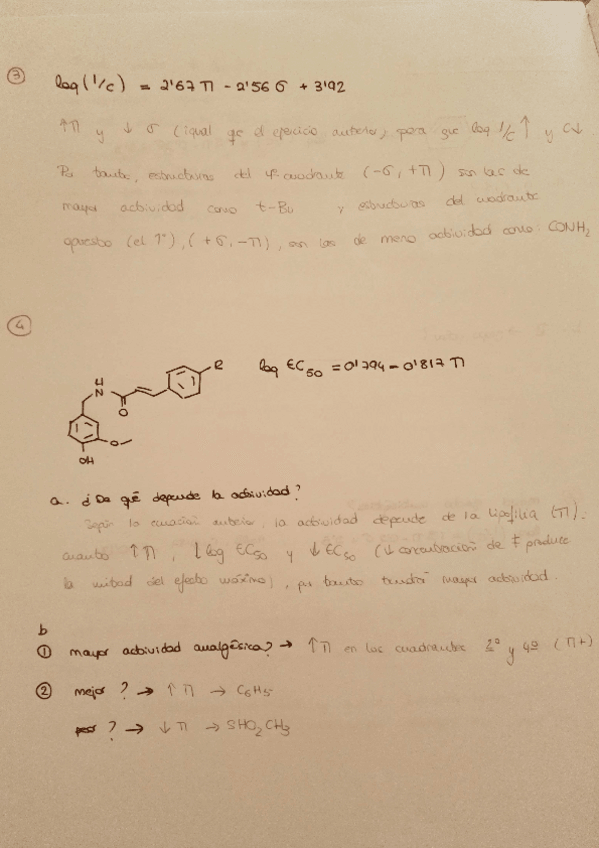 ③ log (1/c) = 2'67 Π - 2'56 σ + 3'92
↑Π y ↓ σ (igual que el ejercicio anterior) para que log 1/c ↑ y C↓.
Por tanto, estructuras del 4º cuadrante (-σ, +Π) son las de
mayor actividad como t-Bu y estructuras del cuadrante
opuesto (el 1º), (+σ, -Π), son las de meno actividad como: CONH2
④
R
log EC50 = 0'794 - 0'817 Π
H
N
O
O
OH
a. ¿De qué depende la actividad?
Según la ecuación anterior, la actividad depende de la lipofilia (Π).
cuanto ↑Π, ↓ log EC50 y ↓ EC50 (↓ concentración de F produce
la mitad del efecto máximo), por tanto tendrá mayor actividad.
b
① mayor actividad analgésica? → ↑Π en los cuadrantes 2º y 4º (Π+)
② mejor ? → ↑Π → C6H5
peor ? → ↓Π → SHO2CH3